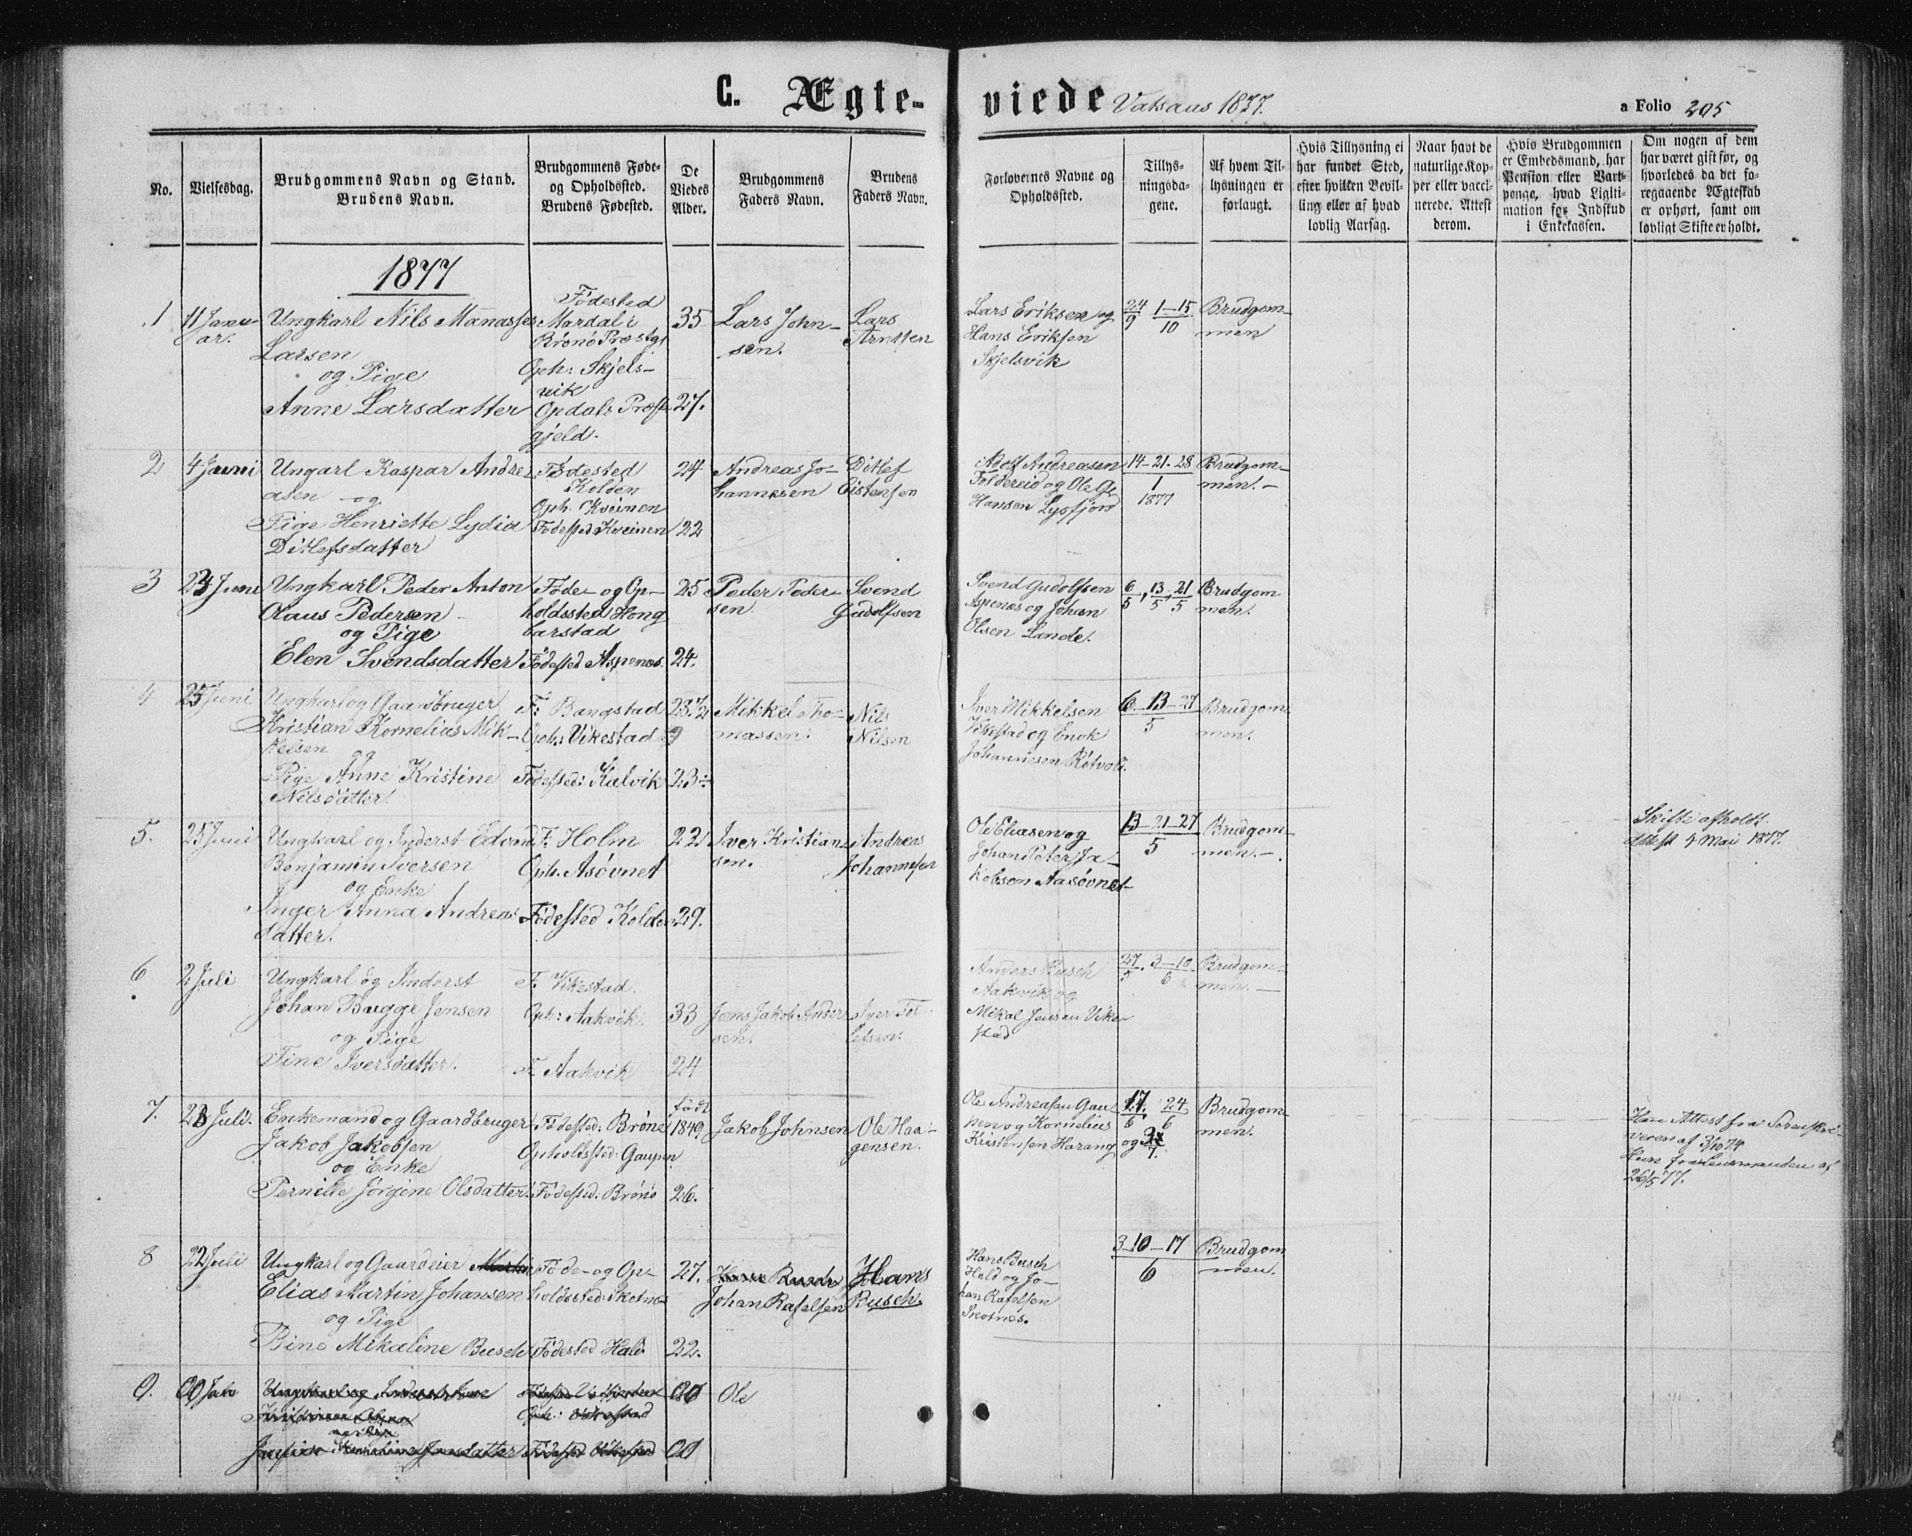 C. Ægteviede Vatsaas 1877.
a Folio 205
No.
Vielsesdag.
Brudgommens Navn og Stand.
Brudens Navn.
Brudgommens Føde-
og Opholdssted.
Brudens Fødested.
De
Viedes
Alder.
Brudgommens
Faders Navn.
Brudens
Faders Navn.
Forlovernes Navne og
Opholdssted.
Tillys-
ningsda-
gene.
Af hvem Til-
lysningen er
forlangt.
Hvis Tillysning ei
har fundet Sted,
efter hvilken Bevil-
ling eller af hvad
lovlig Aarsag.
Naar havt de
naturlige Kop-
per eller vacci-
nerede. Attest
derom.
Hvis Brudgommen
er Embedsmand, har
Pension eller Vart-
penge, hvad Ligiti-
mation for Indskud
i Enkekassen.
Om nogen af dem
har været gift før, og
hvorledes da det fo-
regaaende Ægteskab
er ophørt, samt om
lovligt Skifte er holdt.
1877
1
11 Janu-
ar.
Ungkarl Nils Manasses
Larsen
og Pige
Anne Larsdatter
Fødested
Mardal i
Brønø Præstgj
Oph: Skjels-
vik
Opdals Præste
gjeld.
35
27.
Lars John-
sen.
Lars
Arntsen
Lars Eriksen og
Hans Eriksen
Skjelsvik
24/9 1–15/10
Brudgom-
men
2
4 Juni
Ungarl Kaspar Andre
asen og
Pige Henriette Lydia
Ditlefsdatter
Fødested
Kolden
Oph. Kveinen
Fødested Kveinen
24
22
Andreas Jo-
hannesen
Ditlef
Eistensen
Adolf Andreasen
Foldereid og Ole
Hansen Lysfjord
14–21–28
1
1877
Brudgom-
men.–
3
23 Juni
Ungkarl Peder Anton
Olaus Pedersen
og Pige
Elen Svendsdatter
Føde- og Op-
holdssted Hong
barstad
Fødested Aspenes
25
24.
Peder Peder
sen
Svend
Gudolfsen
Svend Gudolfsen
Aspenes og Johan
Olsen Lande.
6/5, 13/5, 21/5
Brudgom
men.
4
25 Juni
Ungkarl og Gaardbruger
Kristian Kornelius Mik-
kelsen
og
Pige Anne Kristine
Nilsdatter
F: Bangstad
Oph: Vikestad
Fødested: Kalvik
23½
23
Mikkel Tho-
massen
Nils
Nilsen
Iver Mikkelsen
Vikestad og Enok
Johannesen Røtvold.
6–13–27
5
Brudgom
men.
5.
25 Juni
Ungkarl og Inderst Edvard
Benjamin Iversen
og Enke
Inger Anna Andreas
datter.
F. Holm
Oph. Asøvnet
Fødested Kolden
22
29.
Iver Kristian-
sen.
Andreas
Johannesen
Ole Eliasen og
Johan Peter Ja-
kobsen Aasøvnet
13–21–27
5
Brudgom
men.–
Skifte afholdt.
Attest 4 Mai 1877.
6
2 Juli
Ungkarl og Inderst
Johan Bugge Jensen
og Pige
Tine Iversdatter.
F. Vikestad.
Oph: Aakvik
F. Aakvik
33
24
Jens Jakob Anders
sen.
Iver Tol
lefsen.
Anders Busch
Aakvik og
Mikal Jensen Vike
stad
27/5. 3–10/6
Brudgom-
men.–
7.
23 Juli.
Enkemand og Gaardbruger
Jakob Jakobsen
og Enke
Pernille Jørgine Olsdatter
Fødested: Brønø
Opholdssted: Gaupen
Fødested: Brønø
født
1849
26.
Jakob Johnsen
Ole Haa-
gensen.
Ole Andreasen Gau-
pen og Kornelius
Kristensen Harang
17/6, 24/6
og
Brudgom
men.
Han Attest fra Sorenskri-
veren af 3/10 74
Hun fra Lensmanden af
26/5 77.
8
22 Juli
Ungkarl og Gaardeier Martin
Elias Martin Johansen
og Pige
Bine Mikaline Busch
Føde- og Op-
holdssted: Skotnes
Fødested Hald
27.
22.
Hans Busch
Johan Rafelsen
Hans
Busch.
Hans Busch
Hald og Jo-
han Rafelsen
Skotnes.
3–10–17
6
Brudgom
men.
9.
Ole